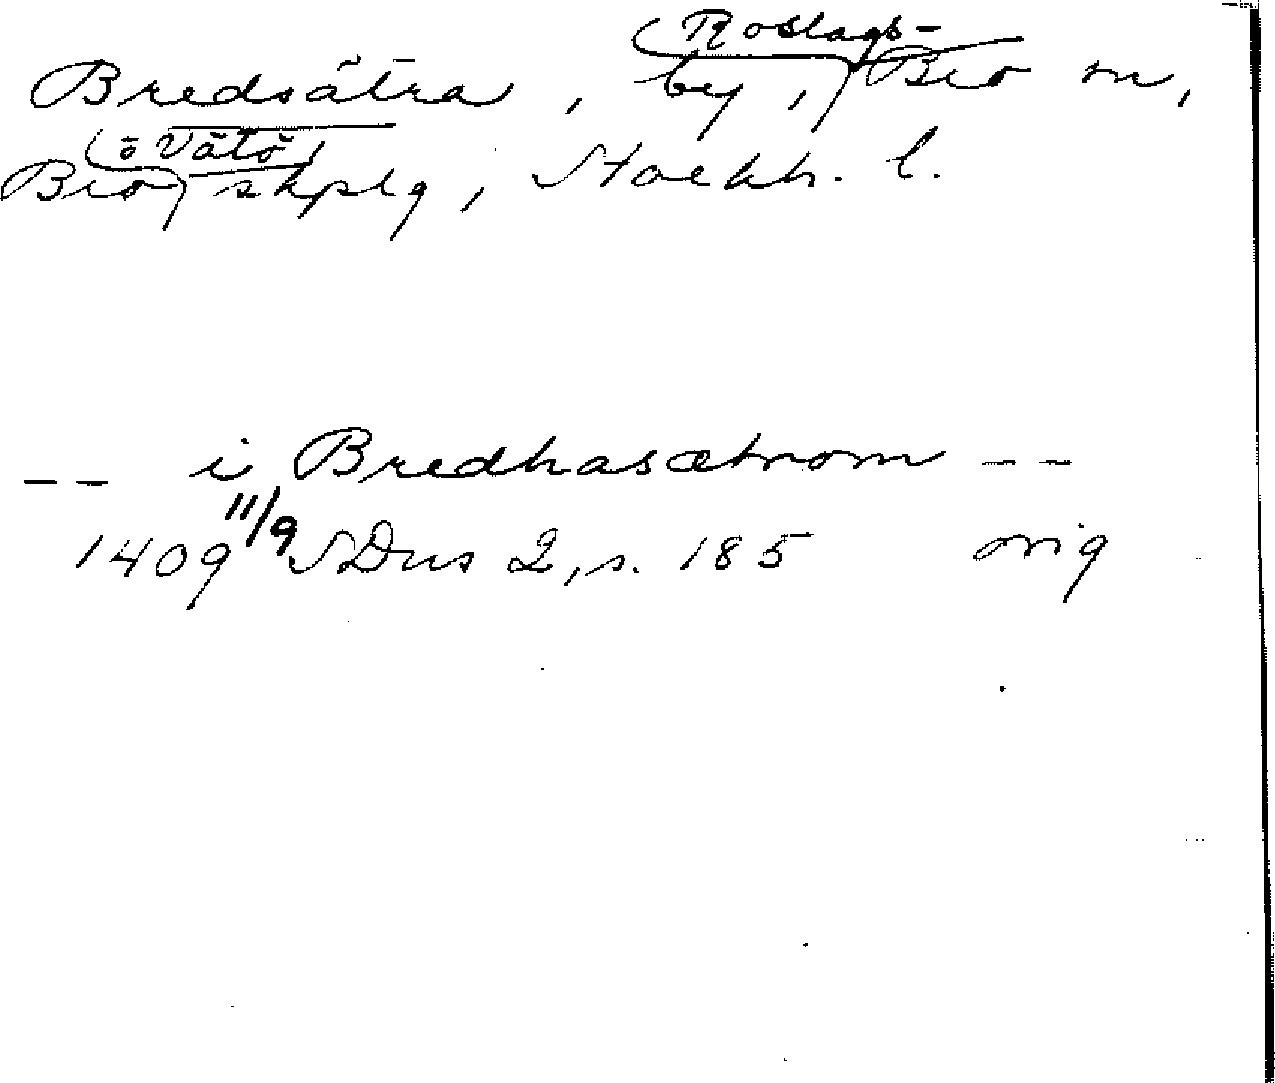 Roslags-
Bredsätra, by, Bro sn,
ö Vätö
Bro skplg, Stockh. l.
-- i Bredhasætrom --
1409 11/9 SDns 2, s. 185 orig